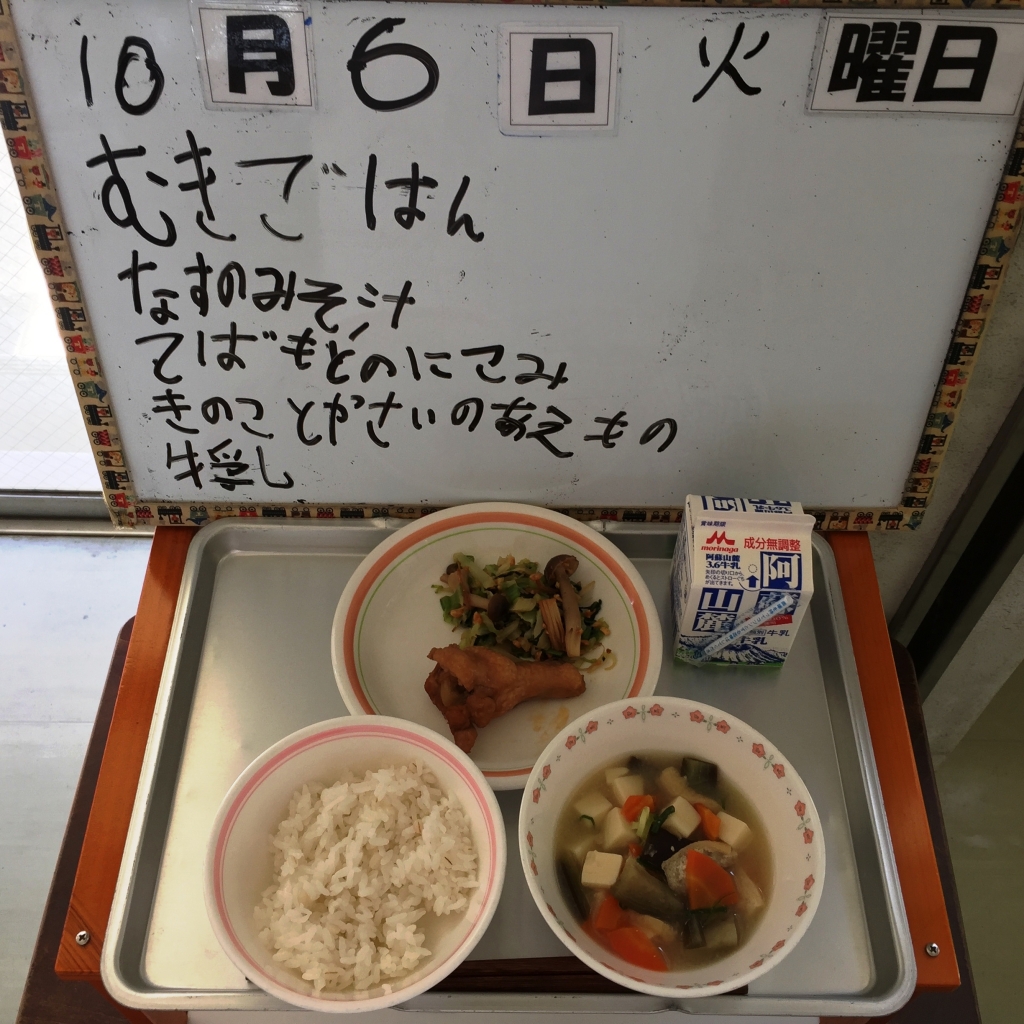 10月6日 火曜日
むぎごはん
なすのみそ汁
てばもとのにこみ
きのことやさいのあえもの
牛乳
賞味期限
morinaga
成分無調整
阿蘇山麓
3.6牛乳
阿蘇
山麓
牛乳